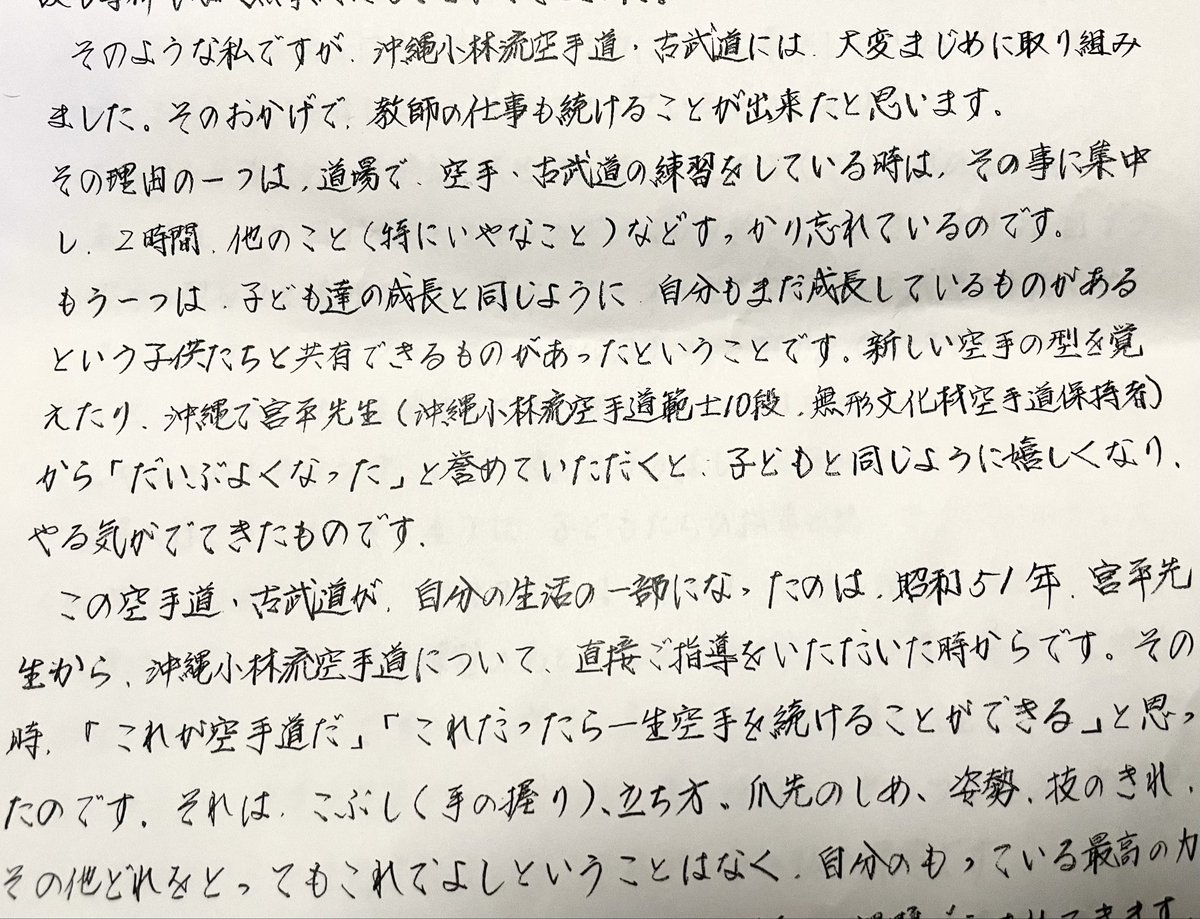 そのような私ですが、沖縄小林流空手道・古武道には、大変まじめに取り組み
ました。そのおかげで、教師の仕事も続けることが出来たと思います。
その理由の一つは、道場で、空手・古武道の練習をしている時は、その事に集中
し、2時間、他のこと(特にいやなこと)などすっかり忘れているのです。
もう一つは、子ども達の成長と同じように、自分もまだ成長しているものがある
という子供たちと共有できるものがあったということです。新しい空手の型を覚
えたり、沖縄で宮平先生(沖縄小林流空手道範士10段、無形文化材空手道保持者)
から「だいぶよくなった」と誉めていただくと、子どもと同じように嬉しくなり、
やる気がでてきたものです。
この空手道・古武道が、自分の生活の一部になったのは、昭和51年、宮平先
生から、沖縄小林流空手道について、直接ご指導をいただいた時からです。その
時、「これが空手道だ」「これだったら一生空手を続けることができる」と思っ
たのです。それは、こぶし(手の握り)、立ち方、爪先のしめ、姿勢、技のきれ、
その他どれをとってもこれでよしということはなく、自分のもっている最高の力